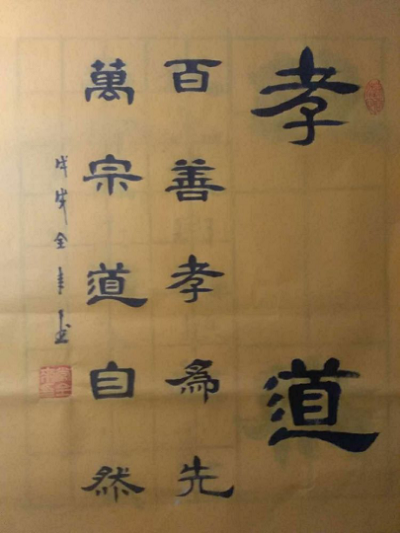 孝道
百善孝為先
萬宗道自然